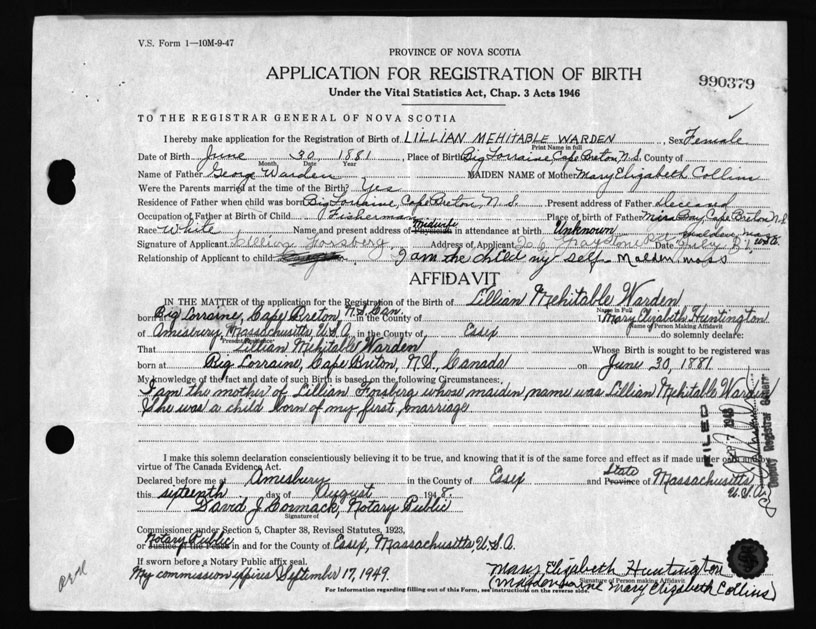 V.S. Form 1—10M-9-47
PROVINCE OF NOVA SCOTIA
APPLICATION FOR REGISTRATION OF BIRTH
990379
Under the Vital Statistics Act, Chap. 3 Acts 1946
TO THE REGISTRAR GENERAL OF NOVA SCOTIA
I hereby make application for the Registration of Birth of LILLIAN MEHITABLE WARDEN, Sex Female
Print Name in full
Date of Birth June 30, 1881, Place of Birth Big Lorraine Cape Breton, N.S. County of
Month Date Year
Name of Father George Warden MAIDEN NAME of Mother Mary Elizabeth Collins
Were the Parents married at the time of the Birth? Yes
Residence of Father when child was born Big Lorraine, Cape Breton, N.S. Present address of Father Deceased
Occupation of Father at Birth of Child Fisherman Place of birth of Father Mira Bay, Cape Breton N.S.
Race White Name and present address of Midwife in attendance at birth Unknown Malden, mass
Signature of Applicant Lillian Forsberg Address of Applicant Date July
Relationship of Applicant to child I am the child my self Malden mass
AFFIDAVIT
IN THE MATTER of the application for the Registration of the Birth of Lillian Mehitable Warden
Name in Full
born at Big Lorraine, Cape Breton, N.S. Can. in the County of I, Mary Elizabeth Huntington
Name of Person Making Affidavit
of Amesbury, Massachusetts, U.S.A. in the County of Essex do solemnly declare:
Present Residence
That Lillian Mehitable Warden Whose Birth is sought to be registered was
born at Big Lorraine, Cape Breton, N.S. Canada on June 30, 1881.
My knowledge of the fact and date of such Birth is based on the following Circumstances:
I am the mother of Lillian Forsberg whose maiden name was Lillian Mehitable Warden
She was a child born of my first marriage
FILED
SEP 7 1948
Deputy Registrar General
I make this solemn declaration conscientiously believing it to be true, and knowing that it is of the same force and effect as if made under oath and by
virtue of The Canada Evidence Act.
Declared before me at Amesbury in the County of Essex and State Province of Massachusetts
U.S.A.
this sixteenth day of August 1948.
David J. Cormack, Notary Public
Signature of
Commissioner under Section 5, Chapter 38, Revised Statutes, 1923,
Notary Public
or Justice of the Peace in and for the County of Essex, Massachusetts, U.S.A.
If sworn before a Notary Public affix seal.
My commission expires September 17, 1949.
Mary Elizabeth Huntington
Signature of Person making Affidavit
(Maiden name Mary Elizabeth Collins)
For Information regarding filling out of this Form, see instructions on the reverse side.